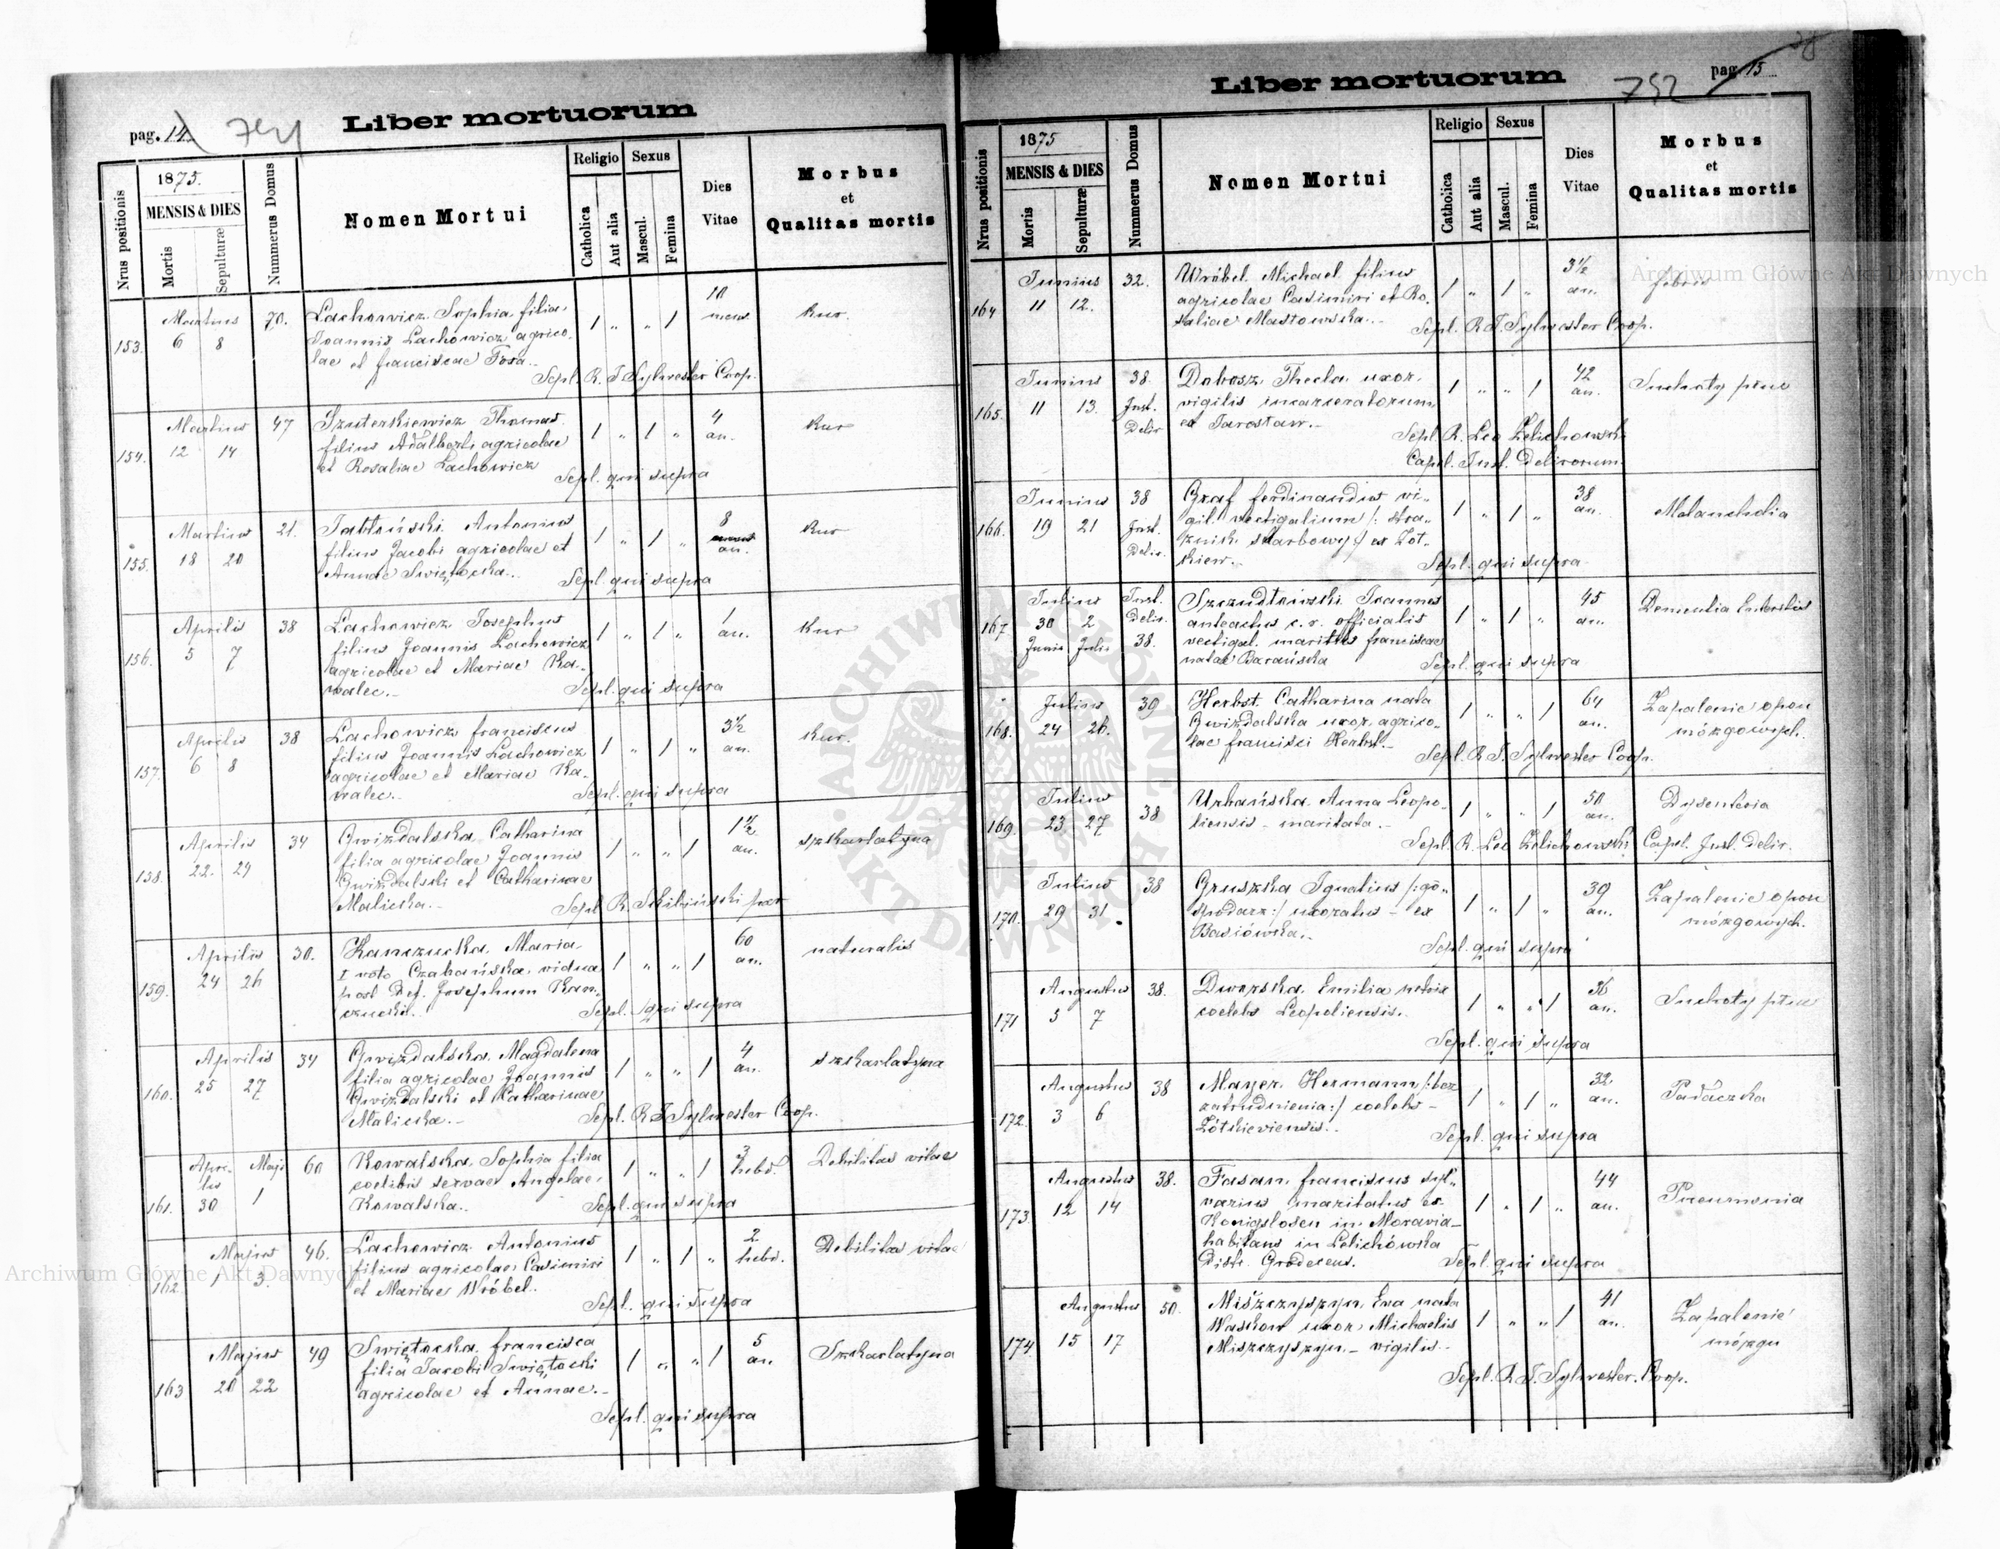 pag. 14
Liber mortuorum
Nrus positionis
1875.
MENSIS & DIES
Mortis
Sepulturæ
Nummerus Domus
Nomen Mortui
Religio
Catholica
Aut alia
Sexus
Mascul.
Femina
Dies
Vitae
Morbus
et
Qualitas mortis
153. Martius 6 8 70.
Lachowicz Sophia filia
Joannis Lachowicz agrico-
lae et Franciscae
1 " " 1
10
mens
Kur.
Sepl. R. J Sylwester Coop.
154. Martius 12 14 47
Szuterkiewicz Thomas
filius Adalberti agricolae
et Rosaliae Lachowicz
1 " 1 "
4
an.
Kur
Sepl. qui supra
155. Martius 18 20 21.
Jabłoński Antonius
filius Jacobi agricolae et
Annae Swiętocka..
1 " 1 "
8
an.
Kur
Sepl. qui supra
156. Aprilis 5 7 38
Lachowicz Josephus
filius Joannis Lachowicz
agricolae et Mariae Ka-
walec.-
1 " 1 "
1
an.
Kur
Sepl. qui supra
157. Aprilis 6 8 38
Lachowicz Franciscus
filius Joannis Lachowicz
agricolae et Mariae Ka-
walec.-
1 " 1 "
3½
an.
Kur.
Sepl. qui supra
158. Aprilis 22. 24 34
Gwizdalska Catharina
filia agricolae Joannis
Gwizdalski et Catharinae
Malicka.-
1 " " 1
1½
an.
szkarlatyna
Sepl R.
159. Aprilis 24 26 30.
Kanczucka Maria
I voto Czabańska, vidua
post Def. Josephum Kan-
czucki.-
1 " " 1
60
an.
naturalis
Sepl. qui supra
160. Aprilis 25 27 34
Gwizdalska Magdalena
filia agricolae Joannis
Gwizdalski et Catharinae
Malicka.-
1 " " 1
4
an.
szkarlatyna
Sepl. R J Sylwester Coop.
161. Apri-
lis 30 Maji 1 60
Kowalska Sophia filia
coelibis servae Angelae
Kowalska..
1 " " 1
3
hebd.
Debilitas vitae
Sepl. qui supra
162. Majus 1 3. 46.
Lachowicz Antonius
filius agricolae Casimiri
et Mariae Wróbel.
1 " 1 "
2
hebd.
Debilitas vitae
Sepl. qui supra
163 Majus 20 22 49
Swiętocka Francisca
filia Jacobi Swiętocki
agricolae et Annae.-
1 " " 1
5
an
Szkarlatyna
Sepl. qui supra
Liber mortuorum
752
pag. 15
Nrus positionis
1875
MENSIS & DIES
Mortis
Sepulturæ
Nummerus Domus
Nomen Mortui
Religio
Catholica
Aut alia
Sexus
Mascul.
Femina
Dies
Vitae
Morbus
et
Qualitas mortis
164 Junius 11 12. 32.
Wróbel Michael filius
agricolae Casimiri et Ro-
saliae Mastowska.-
1 " 1 "
3½
an.
febris
Sepl. R J. Sylwester Coop.
165. Junius 11 13. 38.
Inst.
Delir
Dobosz Thecla uxor
vigilis incarceratorum
ex Jarosław.-
1 " " 1
42
an.
Suchoty płuc
Sepl. R. Leo Zelichowski
Capel. Inst. Delirorum.
166. Junius 19 21 38
Inst.
Delir.
Graf Ferdinandus vi-
gil. vectigalium /: stra-
żnik skarbowy :/ ex Żół-
kiew.-
1 " 1 "
38
an.
Melancholia
Sepl. qui supra
167 Julius 30 2
Junii Julii
Inst.
Delir.
38.
Szczudłowski Joannes
anteactus c. r. officialis
vectigal. maritus Franciscae
natae Barańska
1 " 1 "
45
an.
Dementia
Sepl. qui supra
168. Julius 24 26. 39
Herbst Catharina nata
Gwizdalska uxor agrico-
lae Francisci Herbst.-
1 " " 1
64
an.
Zapalenie opon
mózgowych.
Sepl. R J. Sylwester Coop.
169. Julius 23 27 38
Urbańska Anna Leopo-
liensis - maritata.-
1 " " 1
50
an.
Dysenteria
Sepl. R. Leo Zelichowski Capel. Inst. Delir.
170. Julius 29 31 38
Gruszka Ignatius /: go-
spodarz :/ uxoratus - ex
Basiówka..
1 " 1 "
39
an.
Zapalenie opon
mózgowych.
Sepl. qui supra
171 Augustus 5 7 38.
Dworska Emilia
coelebs Leopoliensis.-
1 " " 1
36
an.
Suchoty płuc
Sepl. qui supra
172. Augustus 3 6 38
Mayer Hermann /: bez
zatrudnienia :/ coelebs -
Żółkieviensis..
1 " 1 "
32.
an.
Padaczka
Sepl. qui supra
173. Augustus 12 14 38.
Fasan Franciscus syl-
varius maritatus ex
Königslosen in Moravia-
habitans in Lelichówka
Distr. Grodecens.
1 " 1 "
44
an.
Pneumonia
Sepl. qui supra
174 Augustus 15 17 50.
Miszczyszyn Eva nata
Waskow uxor Michaelis
Miszczyszyn - vigilis-
1 " " 1
41
an.
Zapalenie
mózgu
Sepl. R J. Sylwester. Coop.
Archiwum Główne Akt Dawnych
Archiwum Główne Akt Dawnych
ARCHIWUM GŁÓWNE AKT DAWNYCH